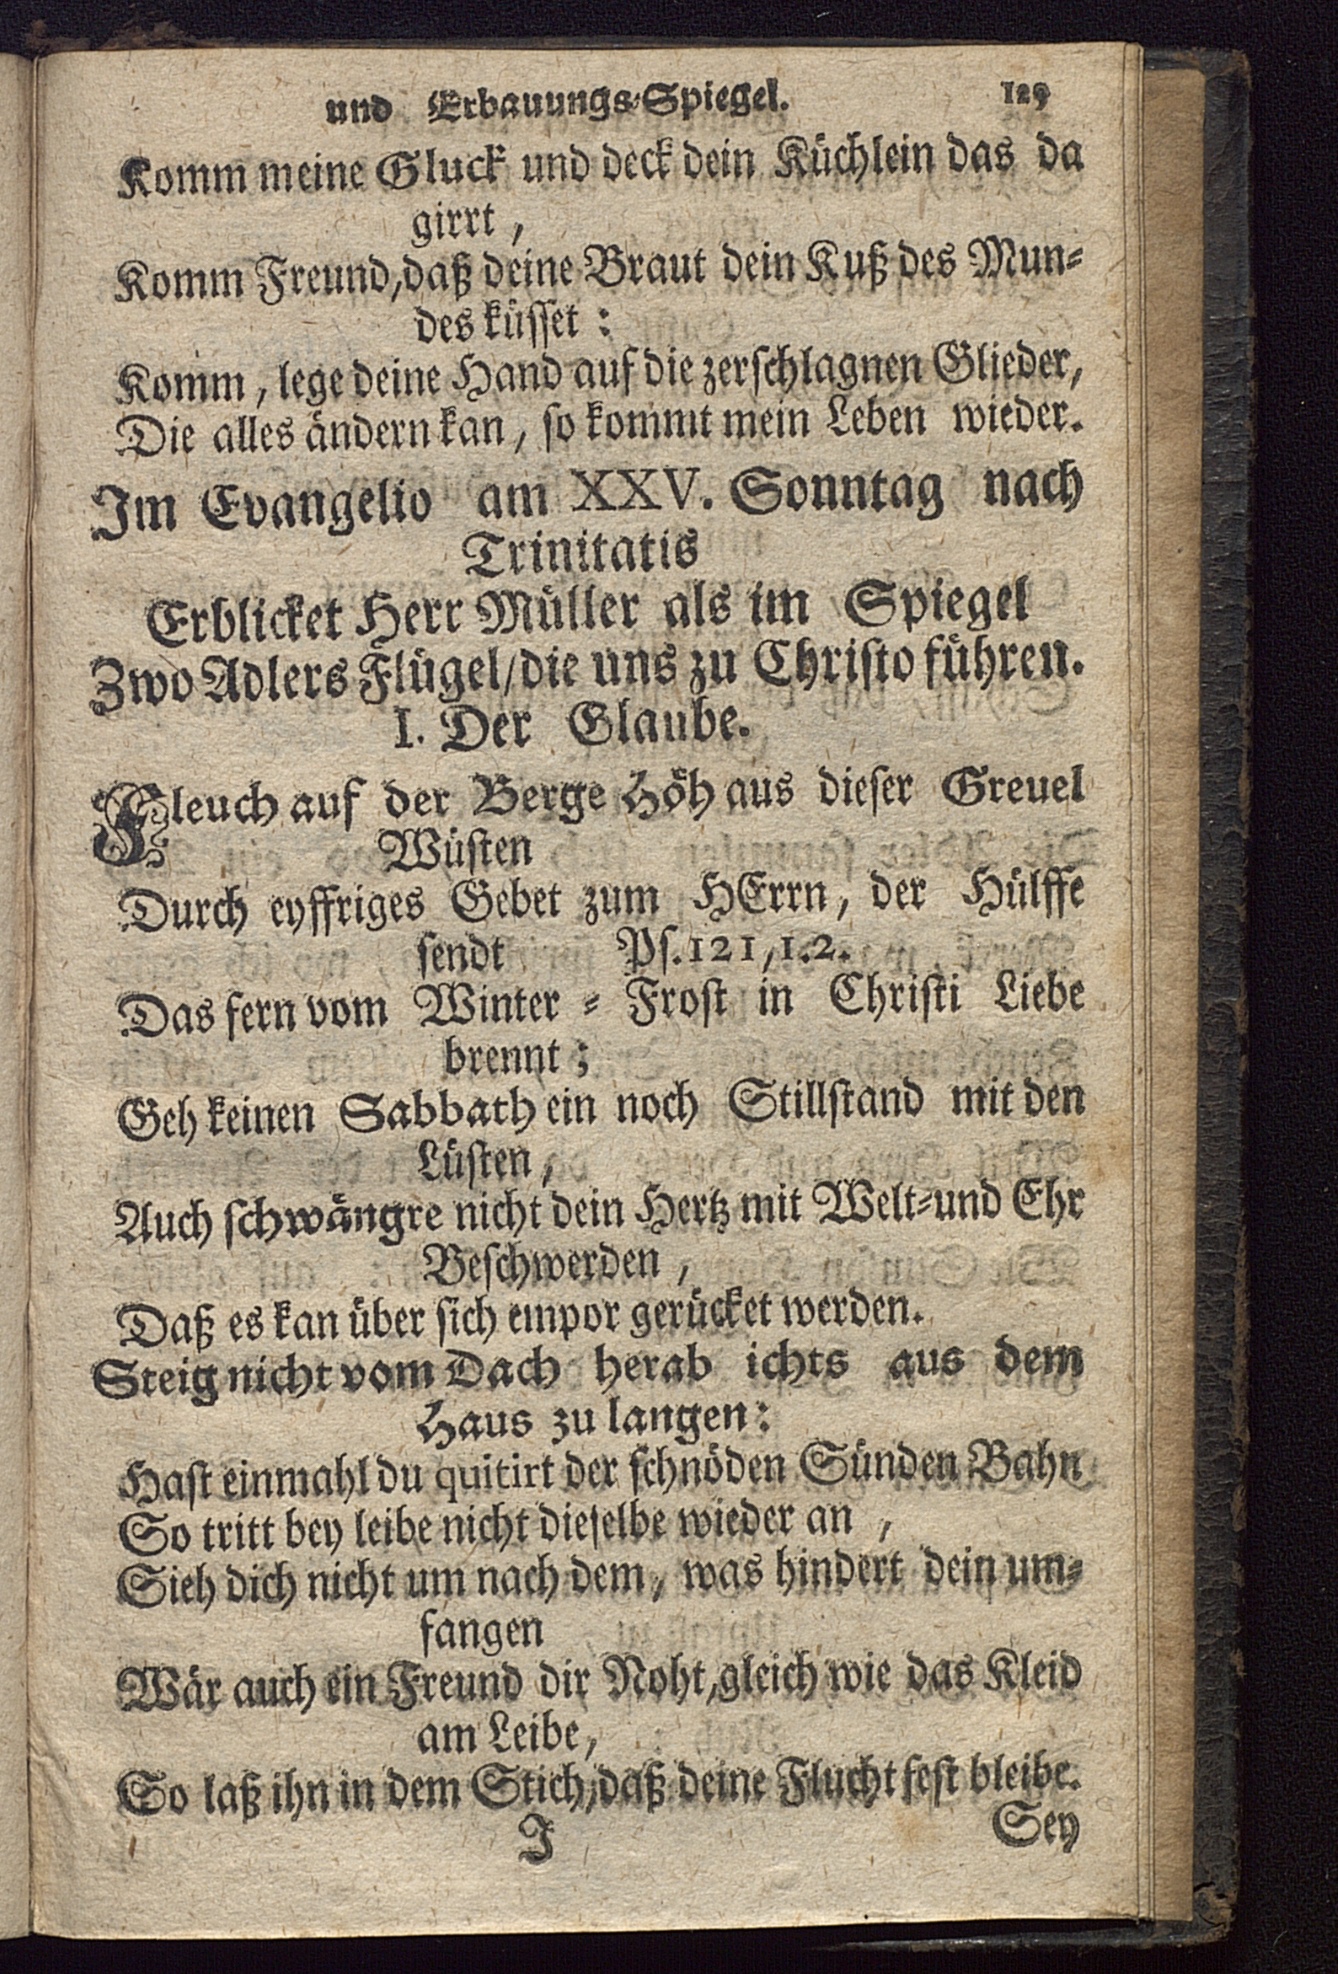 und Erbauungs-Spiegel. 129
Komm meine Gluck und deck dein Küchlein das da
girrt,
Komm Freund, daß deine Braut dein Kuß des Mun-
des küsset:
Komm, lege deine Hand auf die zerschlagnen Glieder,
Die alles ändern kan, so kommt mein Leben wieder.
Im Evangelio am XXV. Sonntag nach
Trinitatis
Erblicket Herr Müller als im Spiegel
Zwo Adlers Flügel/die uns zu Christo führen.
I. Der Glaube.
Fleuch auf der Berge Höh aus dieser Greuel
Wüsten
Durch eyffriges Gebet zum HErrn, der Hülffe
sendt Ps. 121, 1.2.
Das fern vom Winter-Frost in Christi Liebe
brennt;
Geh keinen Sabbath ein noch Stillstand mit den
Lüsten,
Auch schwängre nicht dein Hertz mit Welt-und Ehr
Beschwerden,
Daß es kan über sich empor gerücket werden.
Steig nicht vom Dach herab ichts aus dem
Haus zu langen:
Hast einmahl du quitirt der schnöden Sünden Bahn
So tritt bey leibe nicht dieselbe wieder an,
Sieh dich nicht um nach dem, was hindert dein um-
fangen
Wär auch ein Freund dir Noht, gleich wie das Kleid
am Leibe,
So laß ihn in dem Stich, daß deine Flucht fest bleibe.
J Sey